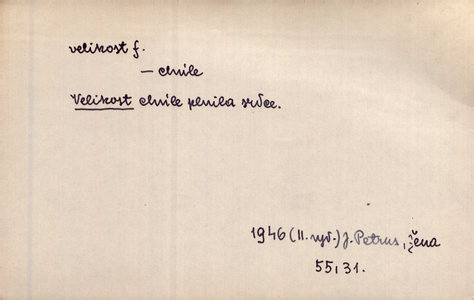 velikost f.
— chvíle
Velikost chvíle plnila srdce.
1946 (II. vyd.) J. Petrus, Žena
55, 31.